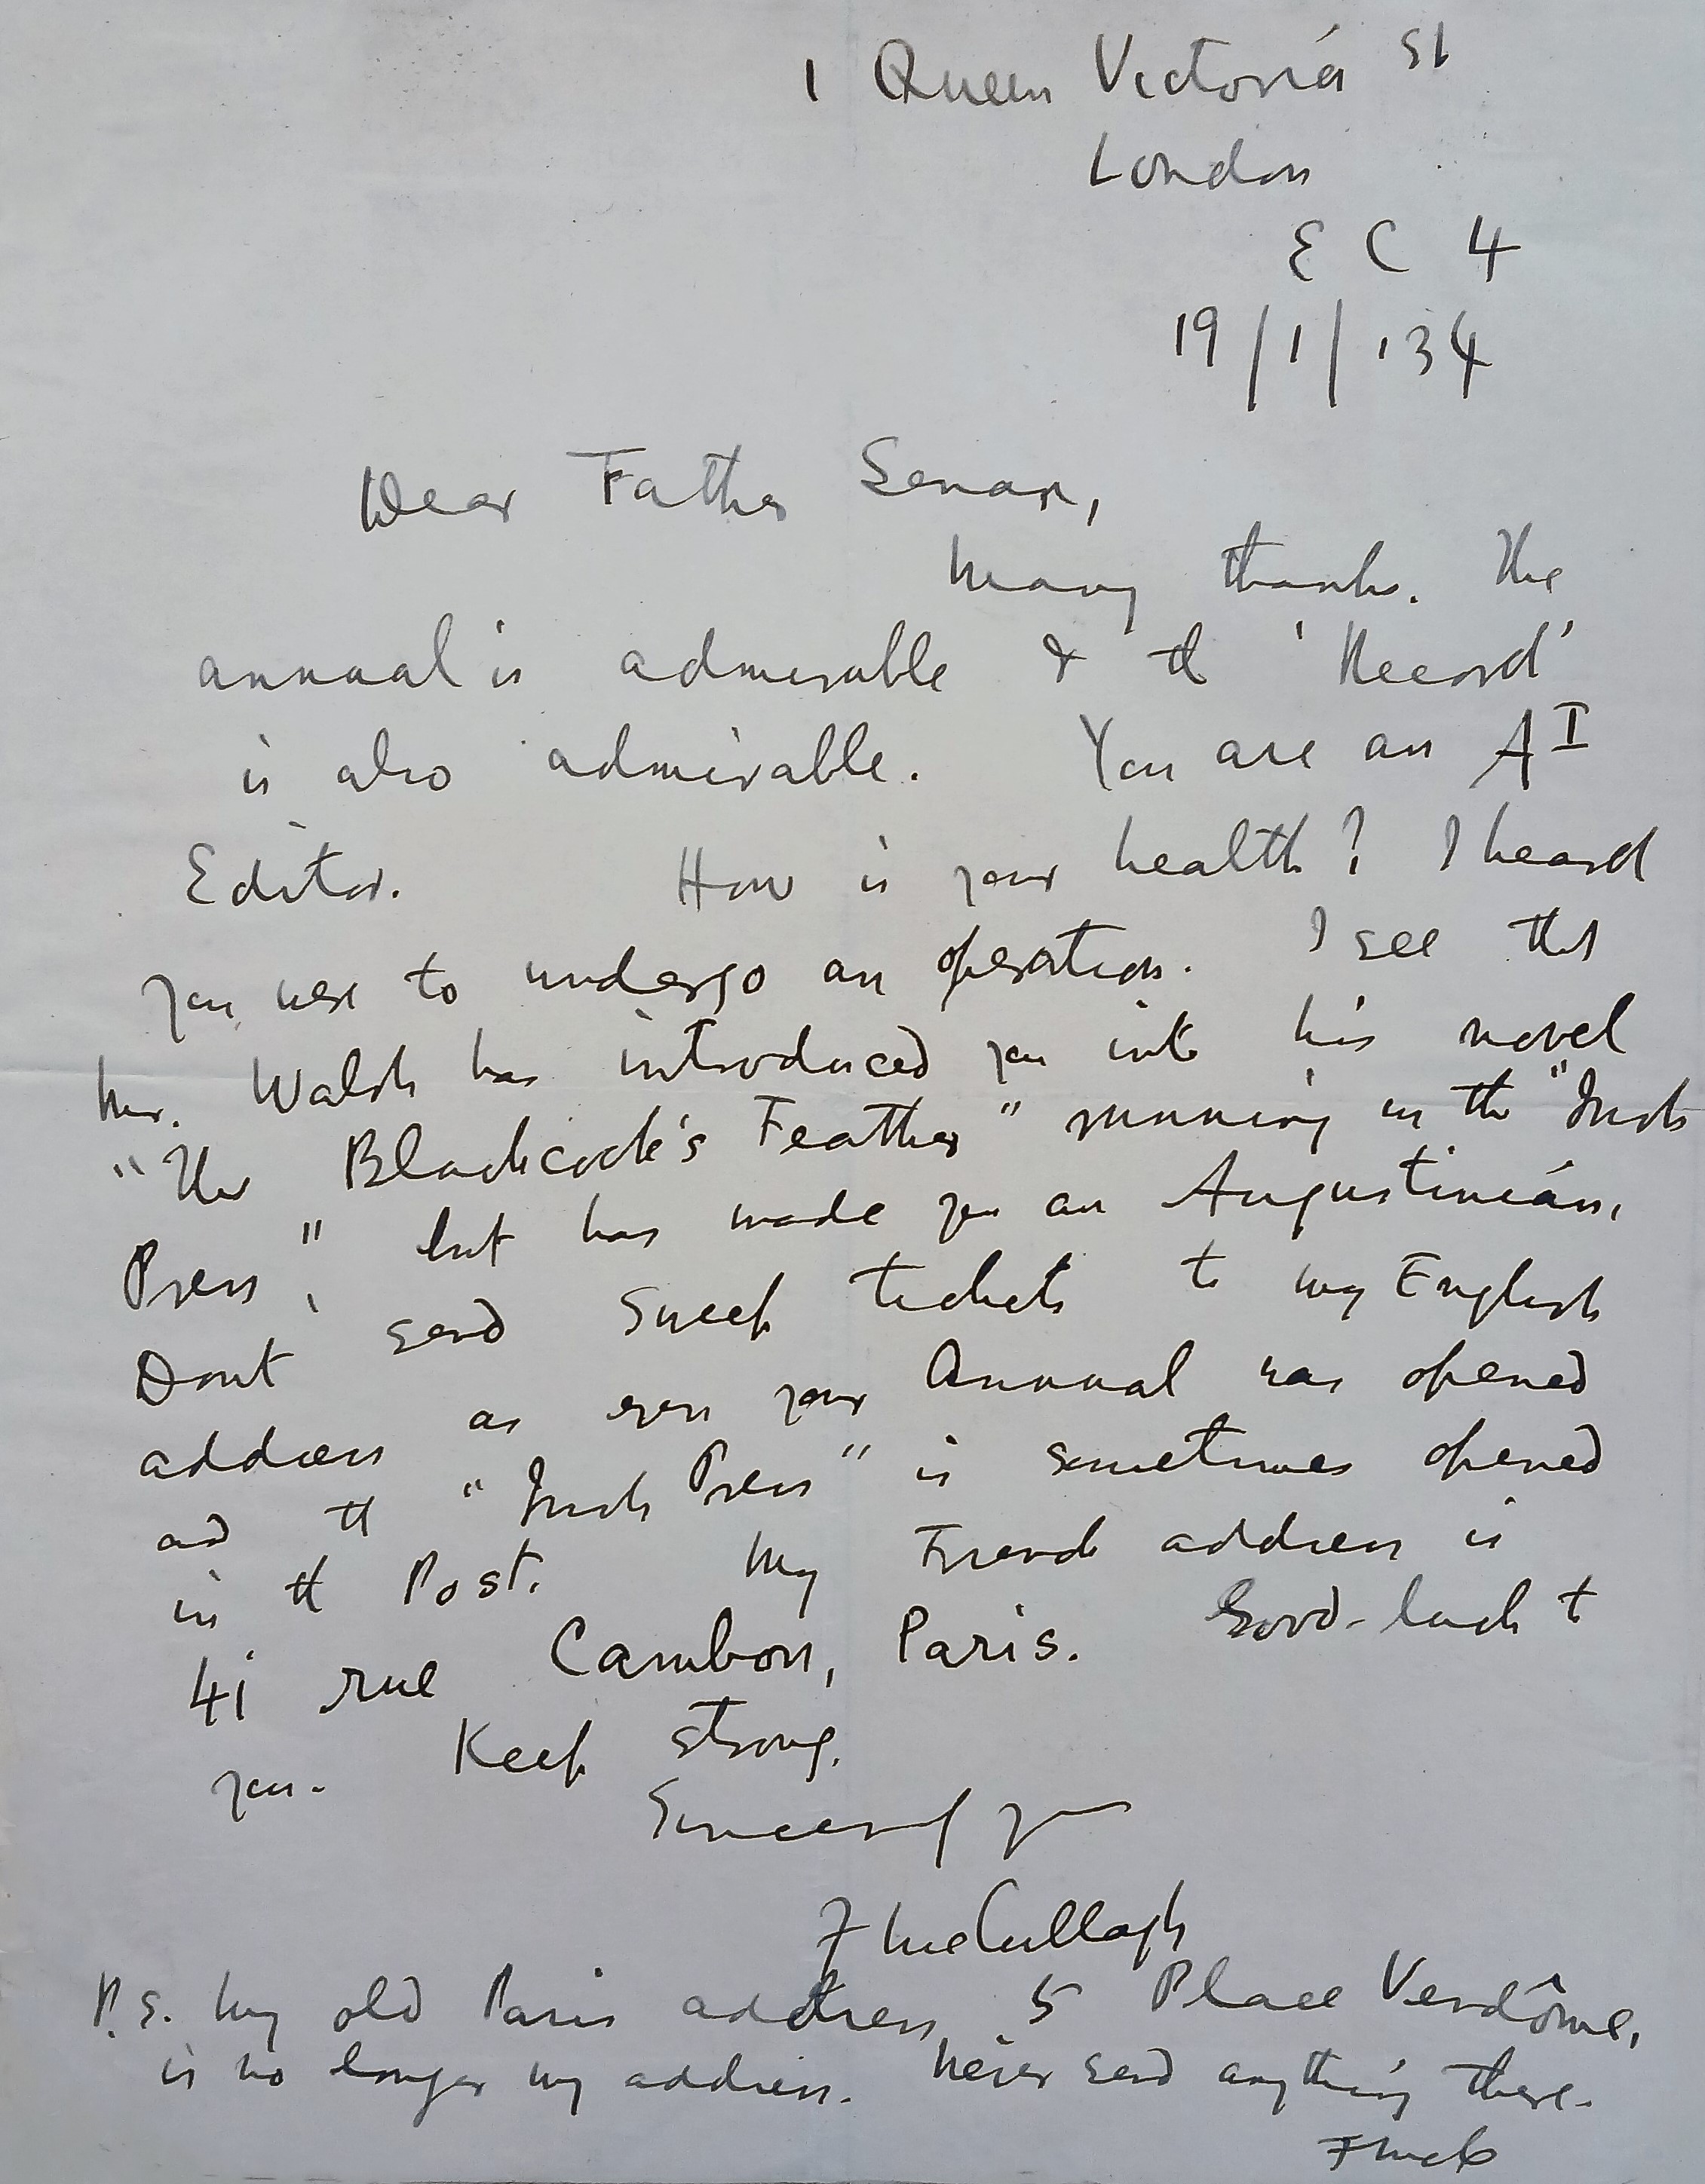 1 Queen Victoria St
London
E C 4
19/1/'34
Dear Father Senan,
Many thanks. The
annual is admirable & the 'Record'
is also admirable. You are an A I
Editor. How is your health? I heard
you were to undergo an operation. I see that
Mr. Walsh has introduced you into his novel
"The Blackcock's Feather" running in the "Irish
Press", but has made you an Augustinian.
Dont send Sweep tickets to my English
address as even your Annual was opened
and the "Irish Press" is sometimes opened
in the Post. My French address is
41 rue Cambon, Paris. Good-luck to
you. Keep strong.
Sincerely yours
F McCullagh
P.S. My old Paris address, 5 Place Vendôme,
is no longer my address. Never send anything there.
F McC